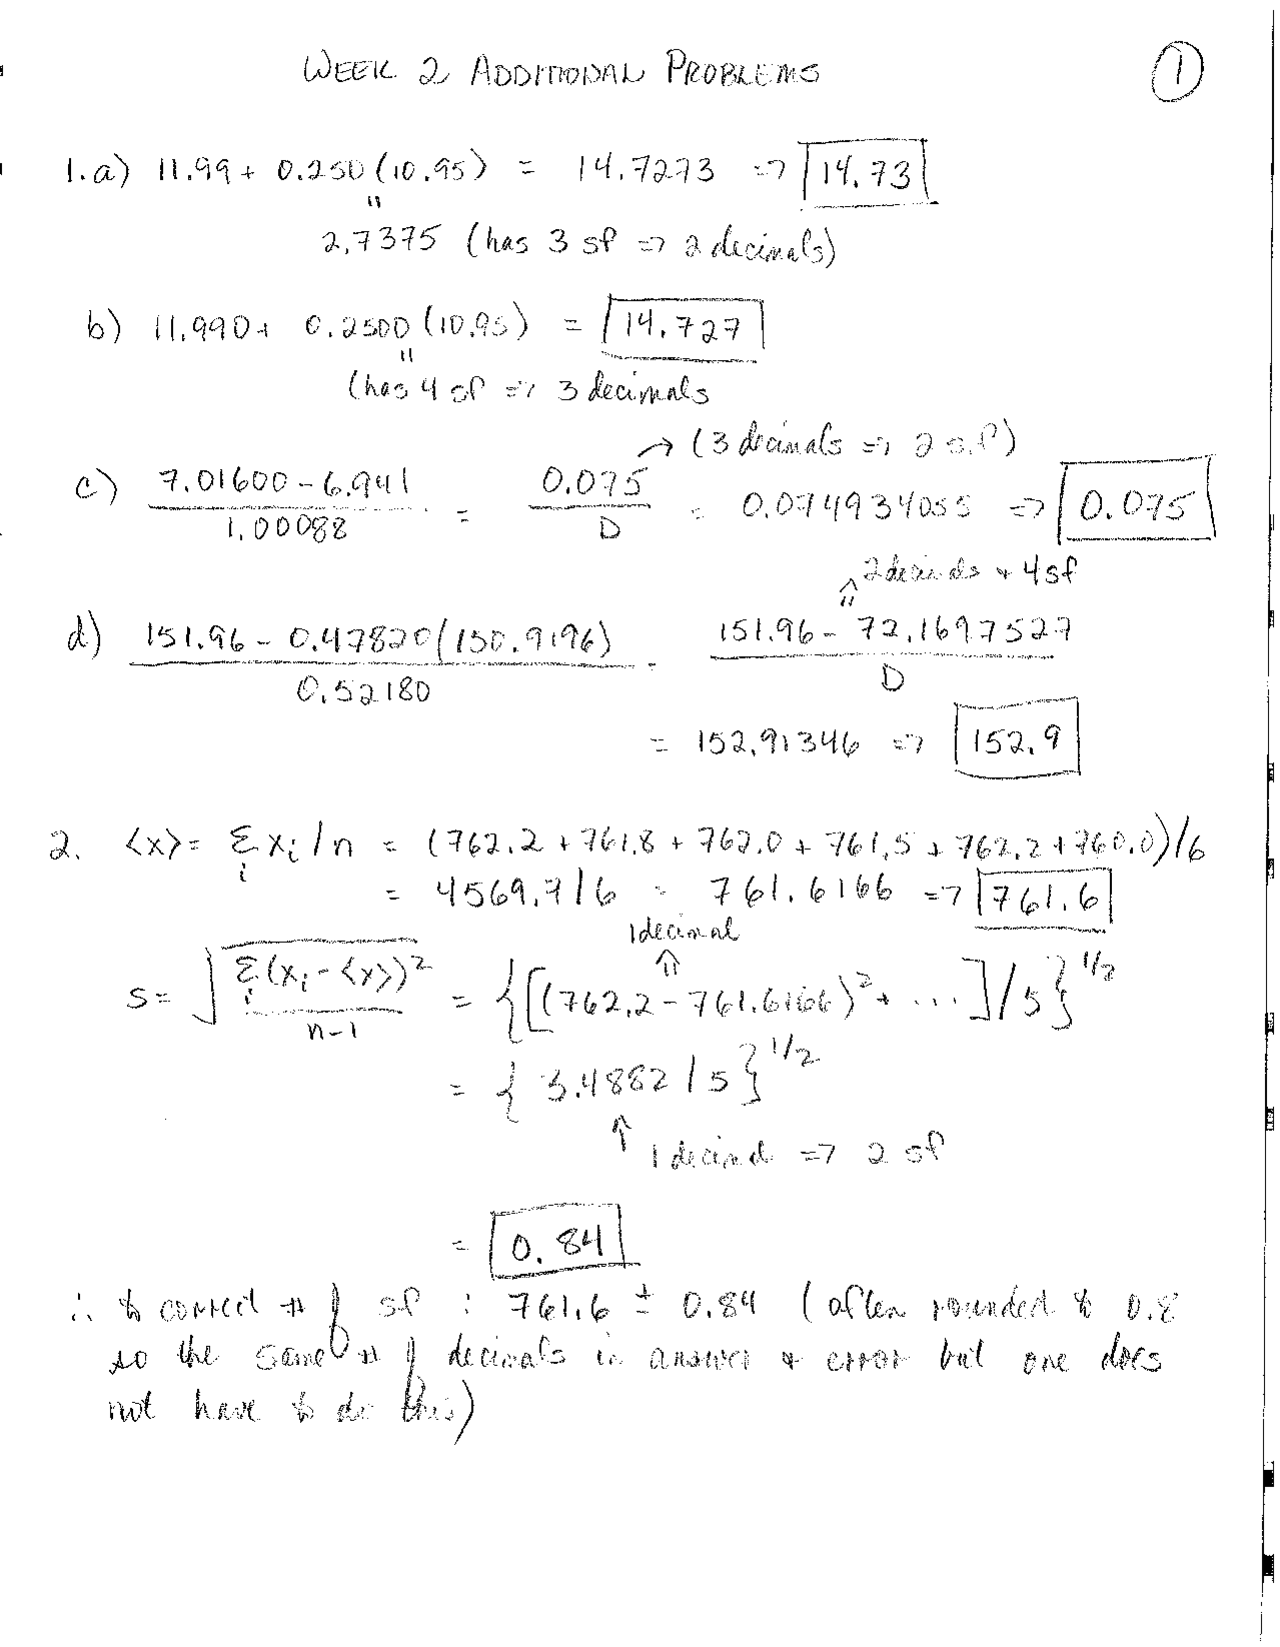 WEEK 2 ADDITIONAL PROBLEMS
1
1.a) 11.99 + 0.250 (10.95) = 14.7273 => 14.73
"
2.7375 (has 3 sf => 2 decimals)
b) 11.990 + 0.2500 (10.95) = 14.727
"
(has 4 sf => 3 decimals
→ (3 decimals => 2 s.f)
c) 7.01600 - 6.941 / 1.00088 = 0.075 / D = 0.074934055 => 0.075
2 decimals + 4 sf
d) 151.96 - 0.47820(150.9196) / 0.52180 = 151.96 - 72.1697527 / D
= 152.91346 => 152.9
2. <x> = Σ xi / n = (762.2 + 761.8 + 762.0 + 761.5 + 762.2 + 760.0)/6
= 4569.7/6 = 761.6166 => 761.6
1 decimal
s = √ Σ(xi - <x>)² / n-1 = {[(762.2 - 761.6166)² + ...]/5}^1/2
= {3.4882 / 5}^1/2
↑ 1 decimal => 2 sf
= 0.84
∴ to correct # of sf : 761.6 ± 0.84 (often rounded to 0.8
so the same # of decimals in answer + error but one does
not have to do this)